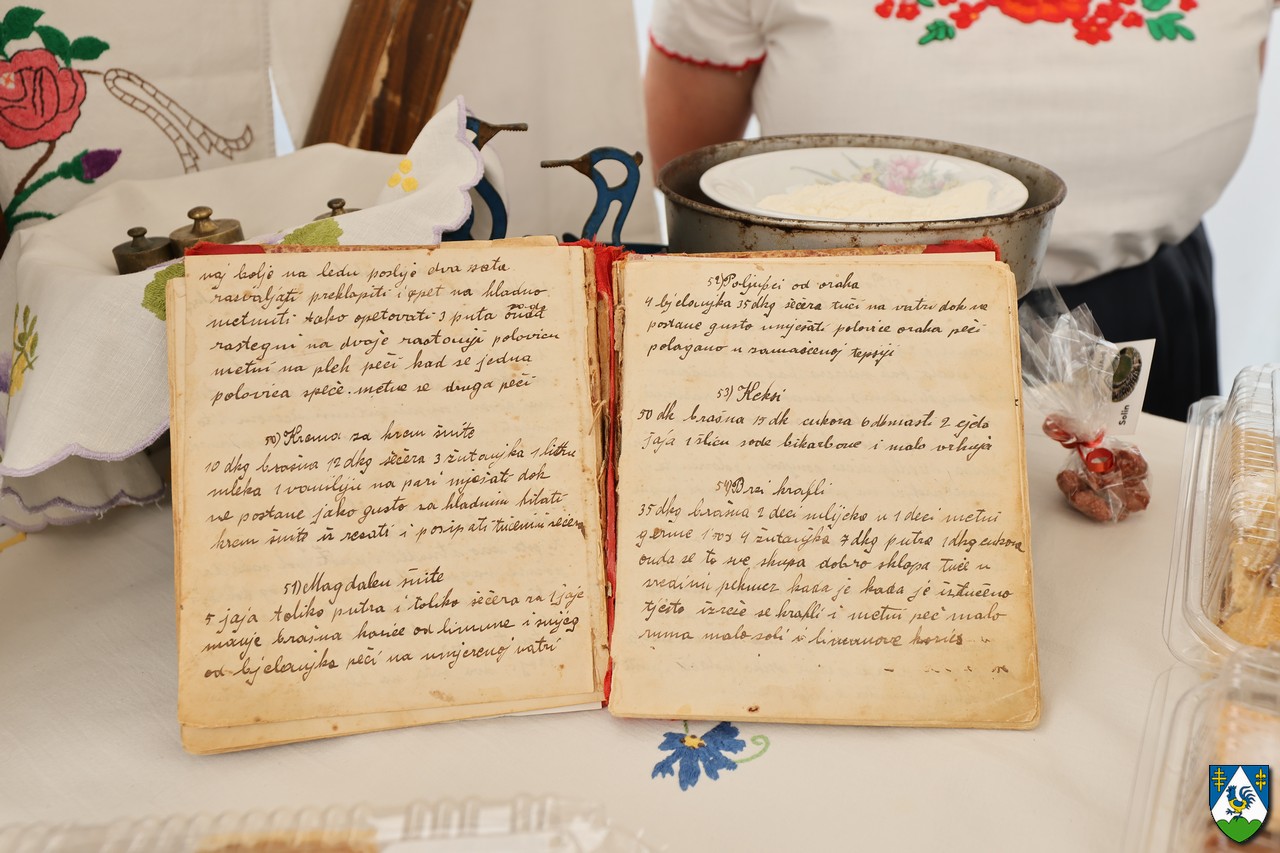 naj bolje na ledu poslije dva sata
rasvaljati preklopiti i opet na hladno
metnuti tako opetovati 3 puta onda
rastegni na dvoje rastavi polovicu
metni na pleh peči kad se jedna
polovica speče metne se druga peči
50) Krema za krem šnite
10 dkg brašna 12 dkg šečera 3 žutanjka 1 litru
mleka 1 vaniliju na pari mješati dok
ne postane jako gusto za hladnim
krem šnite iz rezati i posipati tučenim šečerom
51) Magdalen šnite
5 jaja toliko putra i toliko šečera za 1 jaje
manje brašna korice od limune i snijeg
od bjelanjka peči na umjerenoj vatri
52) Poljupci od oraha
4 bjelanjka 35 dkg šečera tuči na vatri dok ne
postane gusto umješati polovice oraha peči
polagano u zamaščenoj tepsiji
53) Keksi
50 dk brašna 15 dk cukora 6 masti 2 cjela
jaja 1 žlicu sode bikarbone i malo vrhnja
54) Brzi krafli
35 dkg brašna 2 deci mlijeka u 1 deci metni
germe 4 žutanjka 7 dkg putra 1 dkg cukora
onda se to sve skupa dobro sklopa tuče u
sredinu pekmez kada je kada je iztučeno
tjesto izreže se krafli i metni peč malo
ruma malo soli i limunove korice
Solin